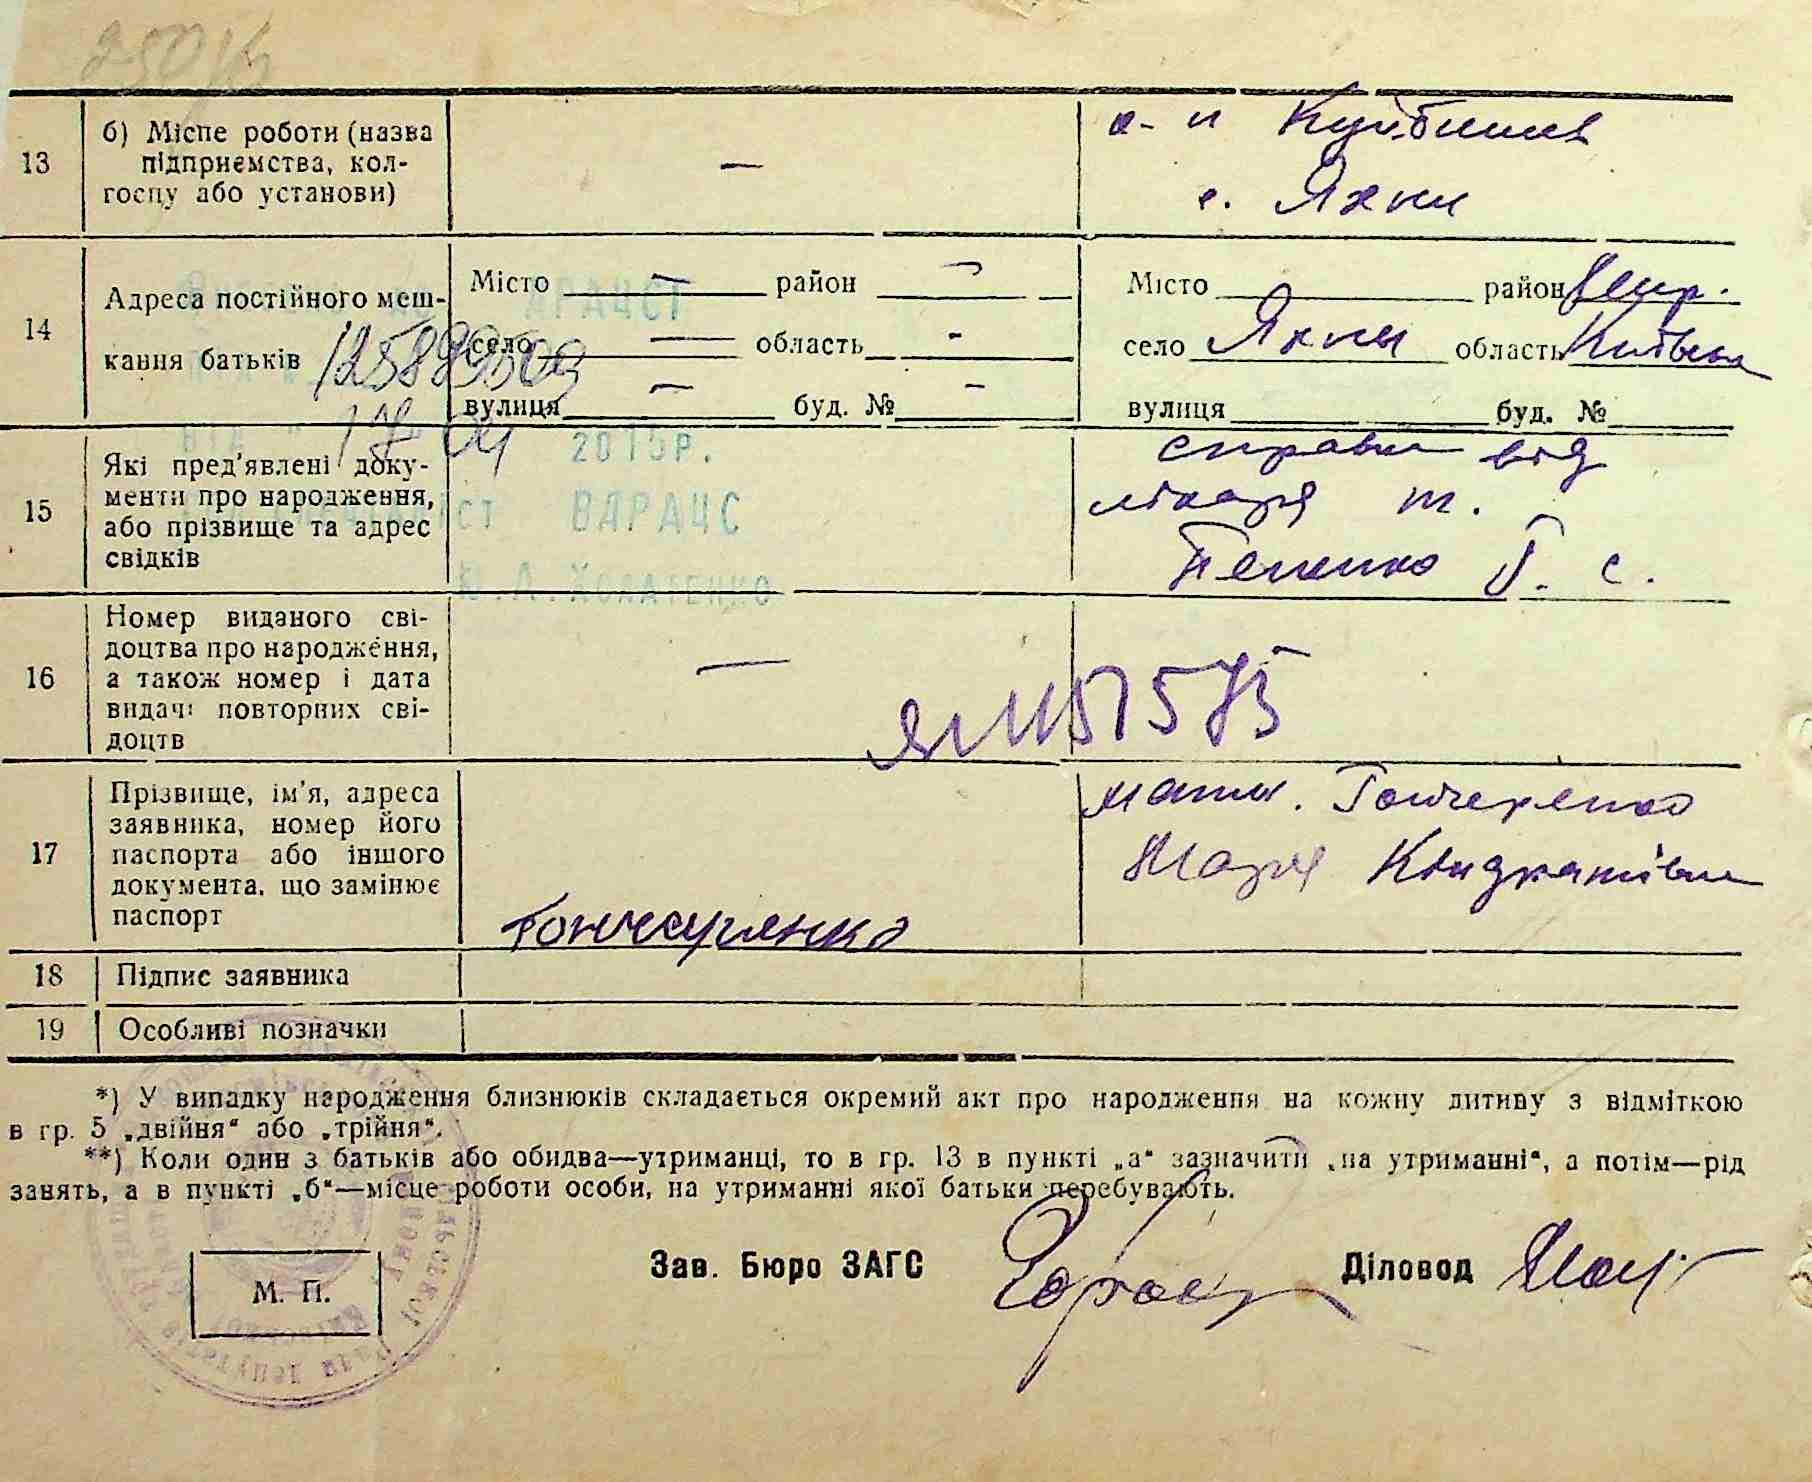 13
б) Місце роботи (назва
підприємства, кол-
госпу або установи)
—
к-п Куйбишев
с. Яхни
14
Адреса постійного меш-
кання батьків
Місто — район —
село — область -
вулиця — буд. № -
Місто район Мир.
село Яхни область Київська
вулиця буд. №
125899509
17 04 2015р.
ВДРАЦС
15
Які пред'явлені доку-
менти про народження,
або прізвище та адрес
свідків
справка від
лікаря т.
Г. С.
16
Номер виданого сві-
доцтва про народження,
а також номер і дата
видачі повторних сві-
доцтв
—
17
Прізвище, ім'я, адреса
заявника, номер його
паспорта або іншого
документа, що замінює
паспорт
мати. Гончаренко
Марія Кіндратівна
Гончаренко
18
Підпис заявника
19
Особливі позначки
*) У випадку народження близнюків складається окремий акт про народження на кожну дитину з відміткою
в гр. 5 „двійня“ або „трійня“.
**) Коли один з батьків або обидва—утриманці, то в гр. 13 в пункті „а“ зазначити „на утриманні“, а потім—рід
занять, а в пункті „б“—місце роботи особи, на утриманні якої батьки перебувають.
Зав. Бюро ЗАГС
Діловод
М. П.